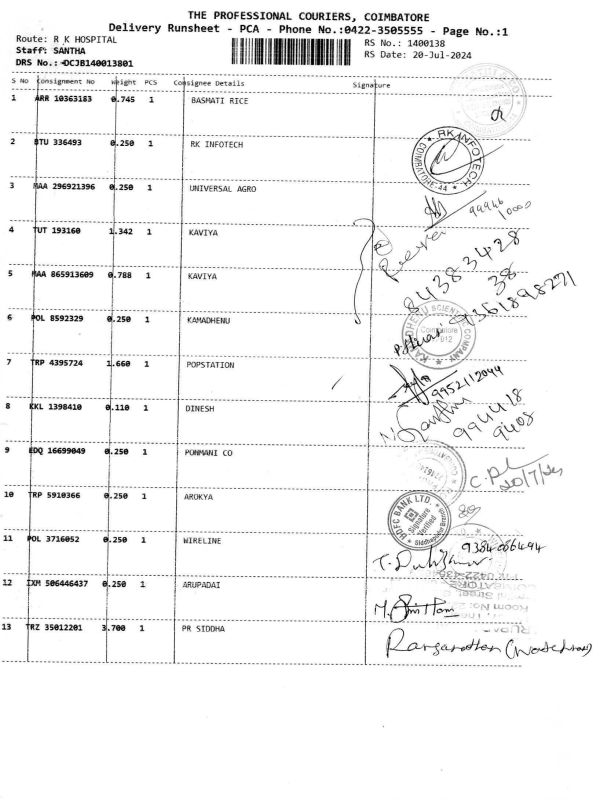 THE PROFESSIONAL COURIERS, COIMBATORE
Delivery Runsheet - PCA - Phone No.:0422-3505555 - Page No.:1
Route: R K HOSPITAL
RS No.: 1400138
Staff: SANTHA
RS Date: 20-Jul-2024
DRS No.: DCJB140013801
S No Consignment No Weight PCS Consignee Details Signature
1 ARR 10363183 0.745 1 BASMATI RICE
2 BTU 336493 0.250 1 RK INFOTECH
RK INFOTECH
COIMBATORE-44
3 MAA 296921396 0.250 1 UNIVERSAL AGRO
99946
10000
4 TUT 193160 1.342 1 KAVIYA
84383428
38
5 MAA 865913609 0.788 1 KAVIYA
9361898271
6 POL 8592329 0.250 1 KAMADHENU
KAMADHENU SCIENTIFIC COMPANY
Coimbatore
7 TRP 4395724 1.660 1 POPSTATION
9952112044
8 KKL 1398410 0.110 1 DINESH
994418
9408
9 EDQ 16699049 0.250 1 PONMANI CO
20/7/24
10 TRP 5910366 0.250 1 AROKYA
HDFC BANK LTD.
Signature
Verified
11 POL 3716052 0.250 1 WIRELINE
9384086494
12 IXM 506446437 0.250 1 ARUPADAI
13 TRZ 35012201 3.700 1 PR SIDDHA